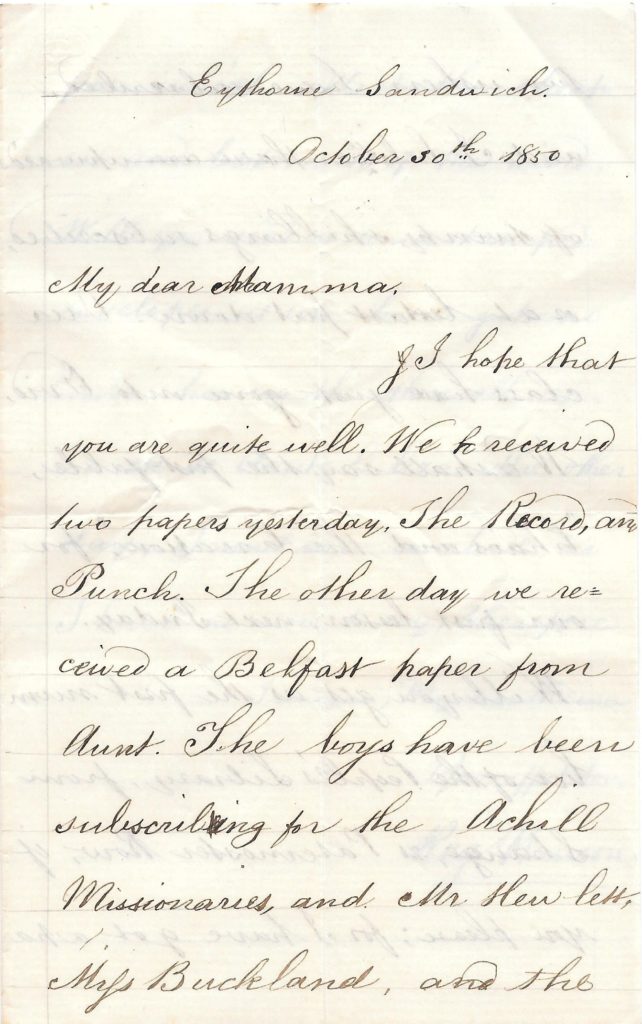 Eythorne Sandwich.
October 30th 1850
My dear Mamma.
I hope that
you are quite well. We received
two papers yesterday, The Record, and
Punch. The other day we re=
ceived a Belfast paper from
Aunt. The boys have been
subscribing for the Achill
Missionaries, and Mr Hewlett,
Miss Buckland, and the